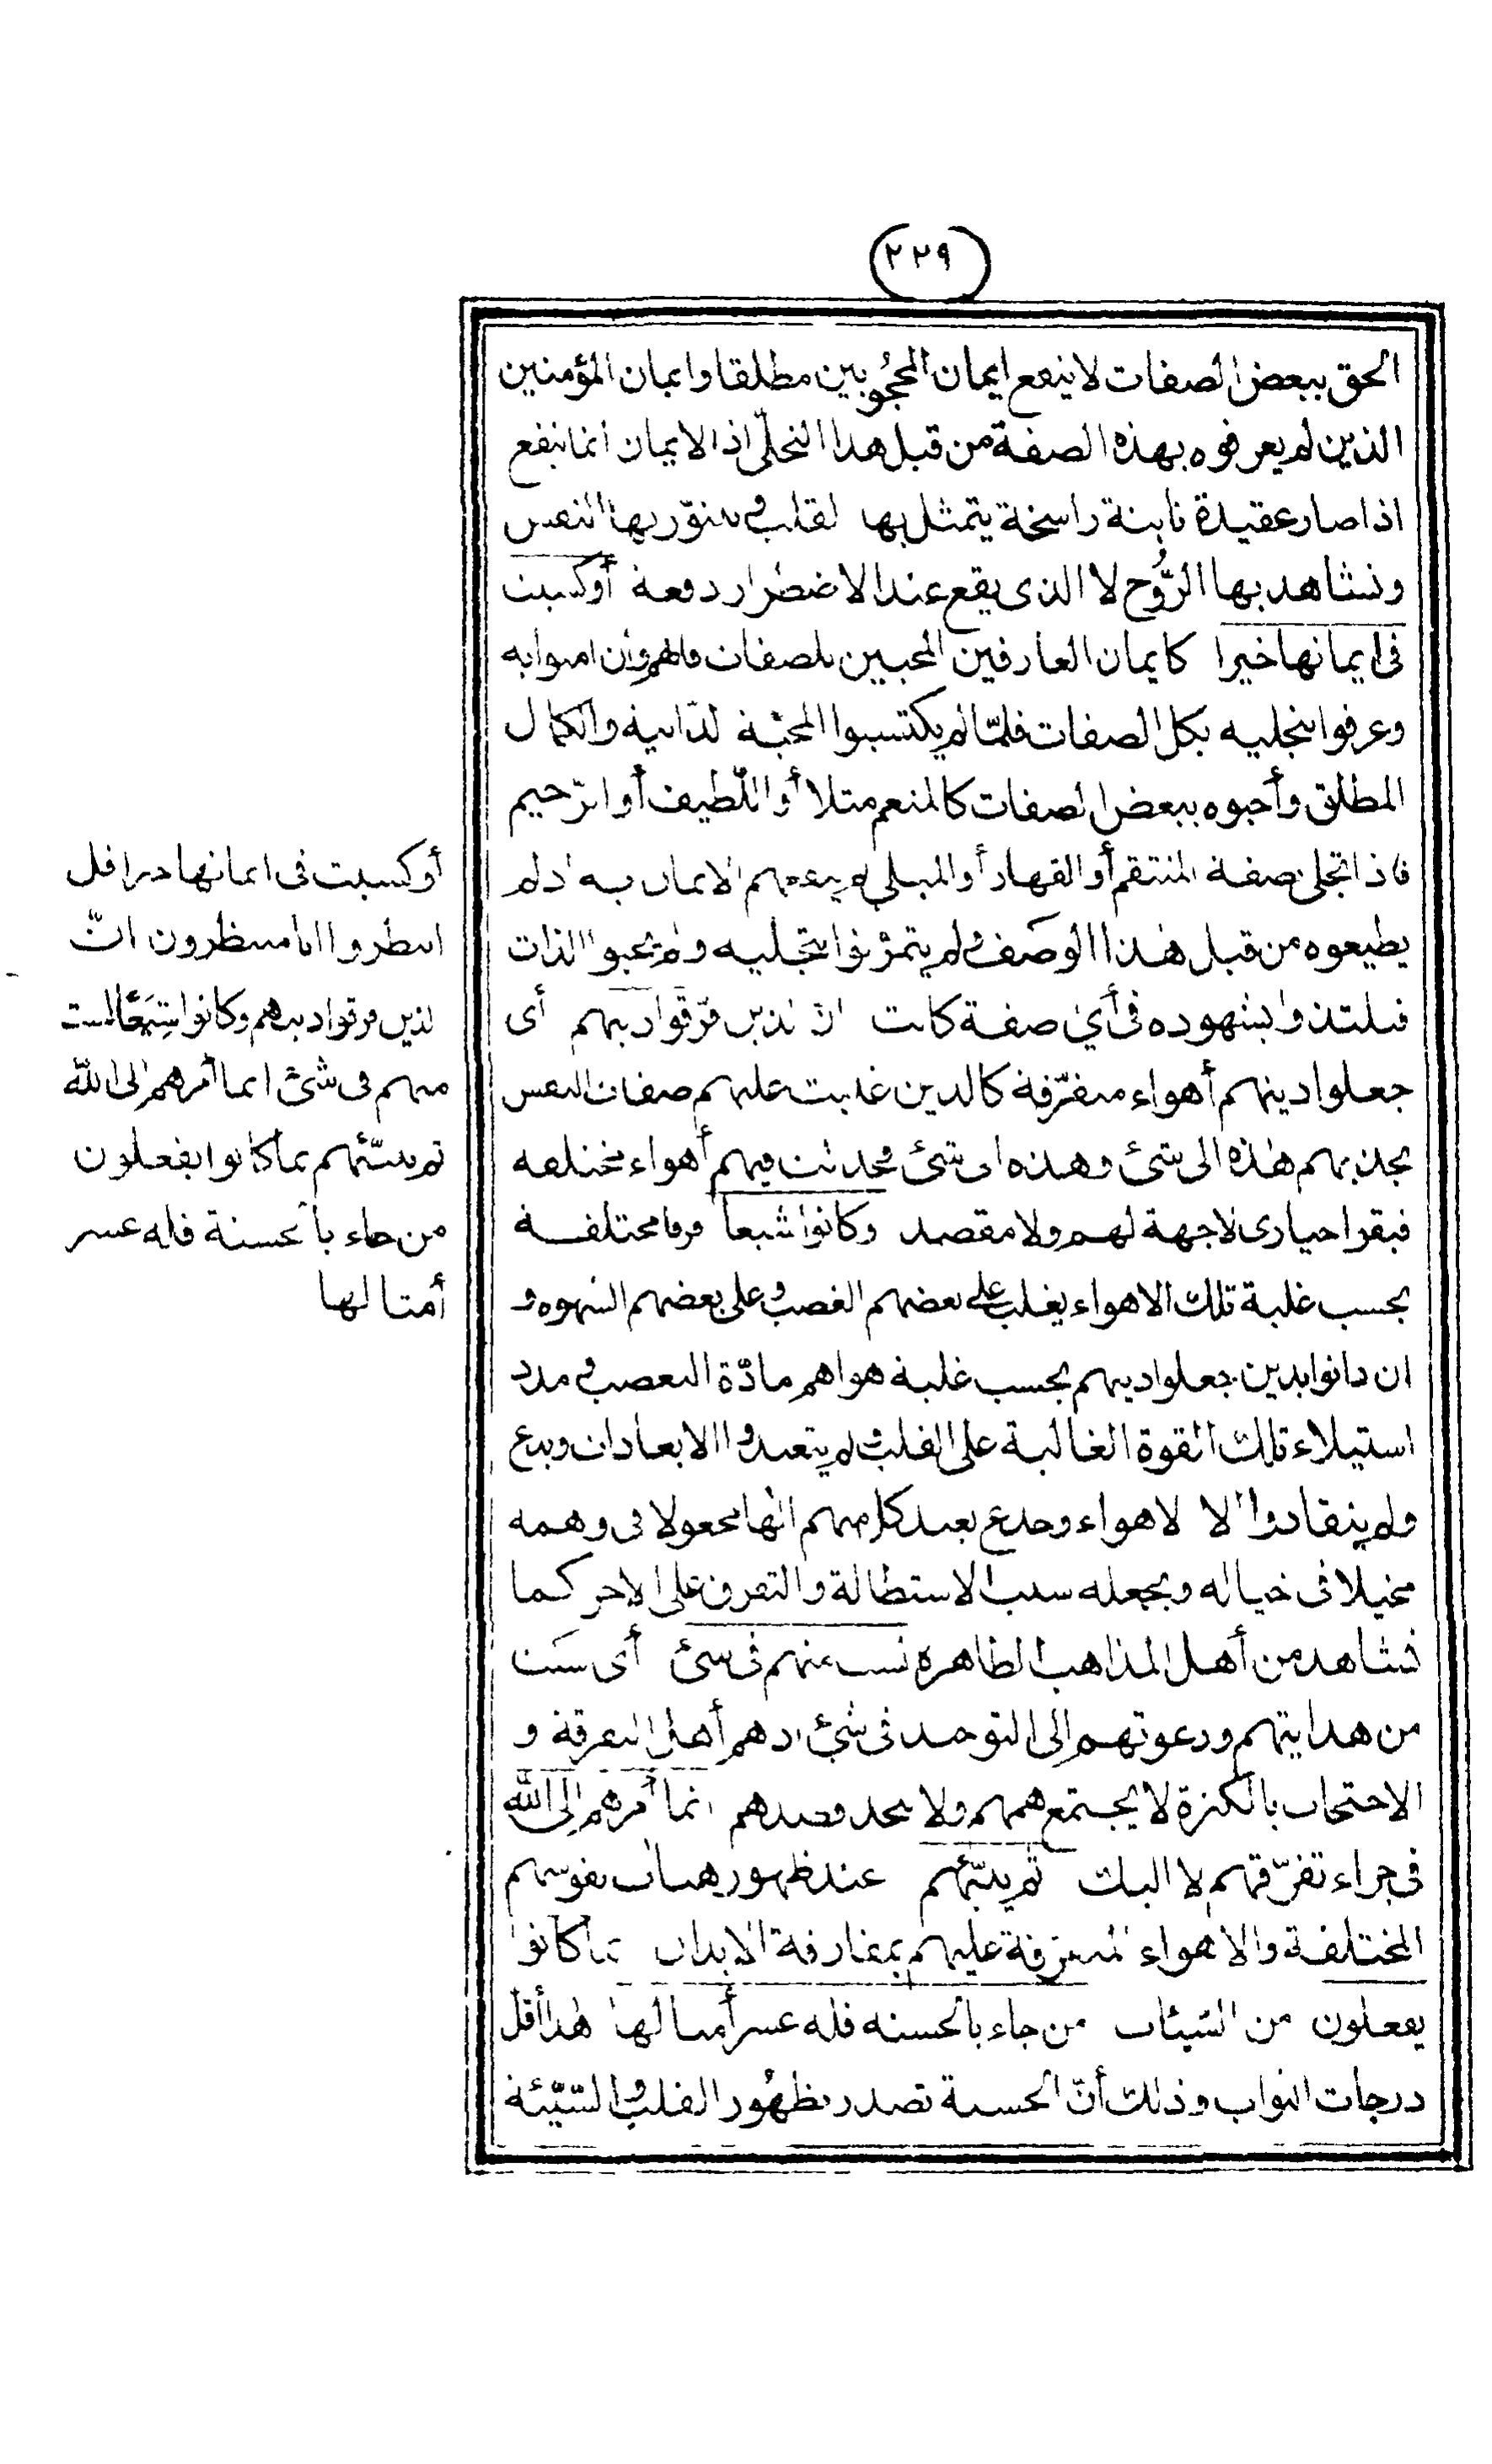 (٢٢٩)
الحق ببعض الصفات لا ينفع ايمان المحجُوبين مطلقا وايمان المؤمنين
الذين لم يعرفوه بهذه الصفة من قبل هذا التجلّى اذ الايمان انما ينفع
اذا صار عقيدة ثابتة راسخة يتمثل بها القلب و يتنوّر بها النفس
وتشاهد بها الرُّوح لا الذى يقع عند الاضطرار دفعة أو كسبت
فى ايمانها خيرا كايمان العارفين المحبين للصفات فانهم وان امنوا به
وعرفوا بتجليه بكل الصفات فلمّا لم يكتسبوا المحبّة الذاتية والكمال
المطلق وأحبوه ببعض الصفات كالمنعم مثلا أو اللّطيف أو الرّحيم
فاذا تجلى بصفة المنتقم أو القهار أو المبلى لم ينفعهم الايمان به اذ لم
يطيعوه من قبل هذا الوصف و لم يتمرّنوا بتجليه و لم يحبوا الذات
فيلتذوا بشهوده فى أى صفة كانت انّ الذين فرّقوا دينهم أى
جعلوا دينهم أهواء متفرّقة كالذين غلبت عليهم صفات النفس
يجذبهم هذه الى شئ وهذه الى شئ فحدثت فيهم أهواء مختلفة
فبقوا حيارى لا جهة لهم ولا مقصد وكانوا شيعا فرقا مختلفة
بحسب غلبة تلك الاهواء يغلب على بعضهم الغضب و على بعضهم الشهوة و
ان دانوا بدين جعلوا دينهم بحسب غلبة هواهم مادّة التعصب و مدد
استيلاء تلك القوة الغالبة على القلب و لم يتعبدوا الا بعادات وبدع
ولم ينقادوا الا لاهواء وخدع يعبد كل منهم الها مجعولا فى وهمه
مخيلا فى خياله ويجعله سبب الاستطالة والتفرق على الاخر كما
نشاهد من أهل المذاهب الظاهرة لست منهم فى شئ أى لست
من هدايتهم ودعوتهم الى التوحيد فى شئ اذ هم أهل التفرقة و
الاحتجاب بالكثرة لا يجتمع هممهم ولا يتحد قصدهم انما أمرهم الى الله
فى جزاء تفرّقهم لا اليك ثم ينبّئهم عند ظهور هيئات نفوسهم
المختلفة والاهواء المتفرقة عليهم بمفارقة الابدان بما كانوا
يفعلون من السّيئات من جاء بالحسنة فله عشر أمثالها هذا أقل
درجات الثواب وذلك أنّ الحسنة تصدر بظهُور القلب و السّيّئة
أو كسبت فى ايمانها خيرا قل
انتظروا انا منتظرون انّ
الذين فرقوا دينهم وكانوا شِيَعًا لست
منهم فى شئ انما أمرهم الى الله
ثم ينبّئهم بما كانوا يفعلون
من جاء بالحسنة فله عشر
أمثالها